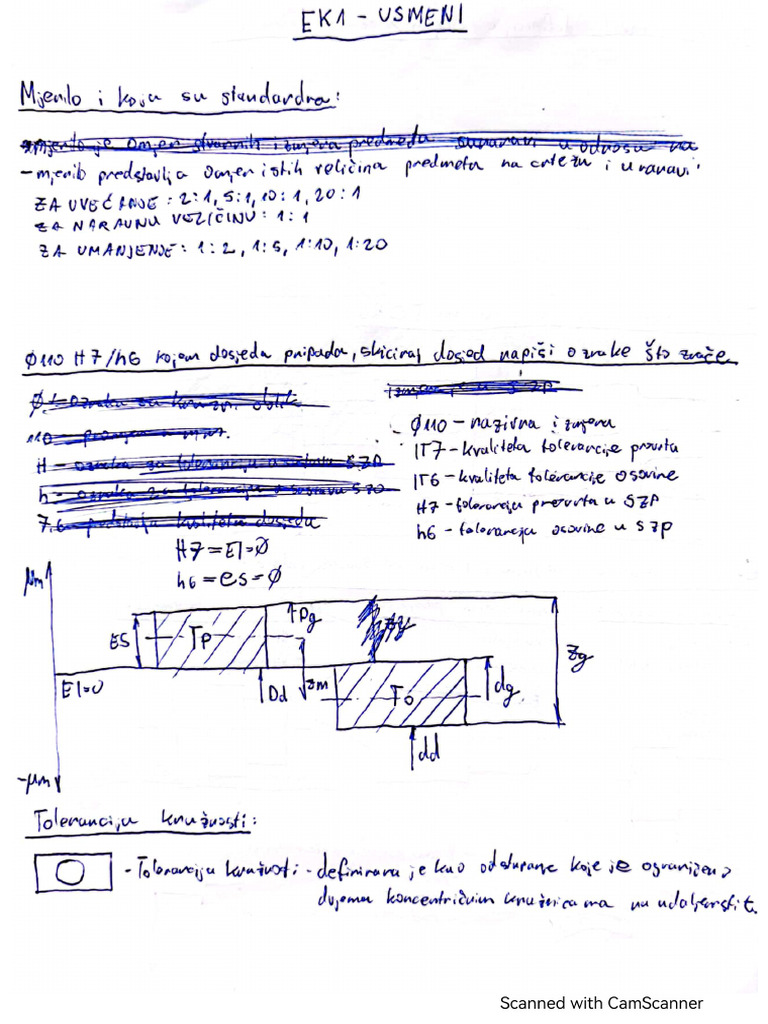 EK1 - USMENI
Mjerilo i koja su standardna:
-mjerilo predstavlja omjer istih veličina predmeta na crtežu i u naravi
ZA UVEĆANJE: 2:1, 5:1, 10:1, 20:1
ZA NARAVNU VELIČINU: 1:1
ZA UMANJENJE: 1:2, 1:5, 1:10, 1:20
Ø110 H7/h6 kojem dosjedu pripada, skiciraj dosjed napiši oznake što znače
Ø110 - nazivna izmjera
IT7 - kvaliteta tolerancije provrta
IT6 - kvaliteta tolerancije osovine
H7 - tolerancija provrta u SZP
h6 - tolerancija osovine u SZP
H7 = EI = Ø
h6 = es = Ø
μm
ES
Tp
Dg
Zg
EI=0
Dd
zm
To
dg
dd
-μm
Tolerancija kružnosti:
- Tolerancija kružnosti - definirana je kao odstupanje koje je ograničeno
dvjema koncentričnim kružnicama na udaljenosti t.
Scanned with CamScanner